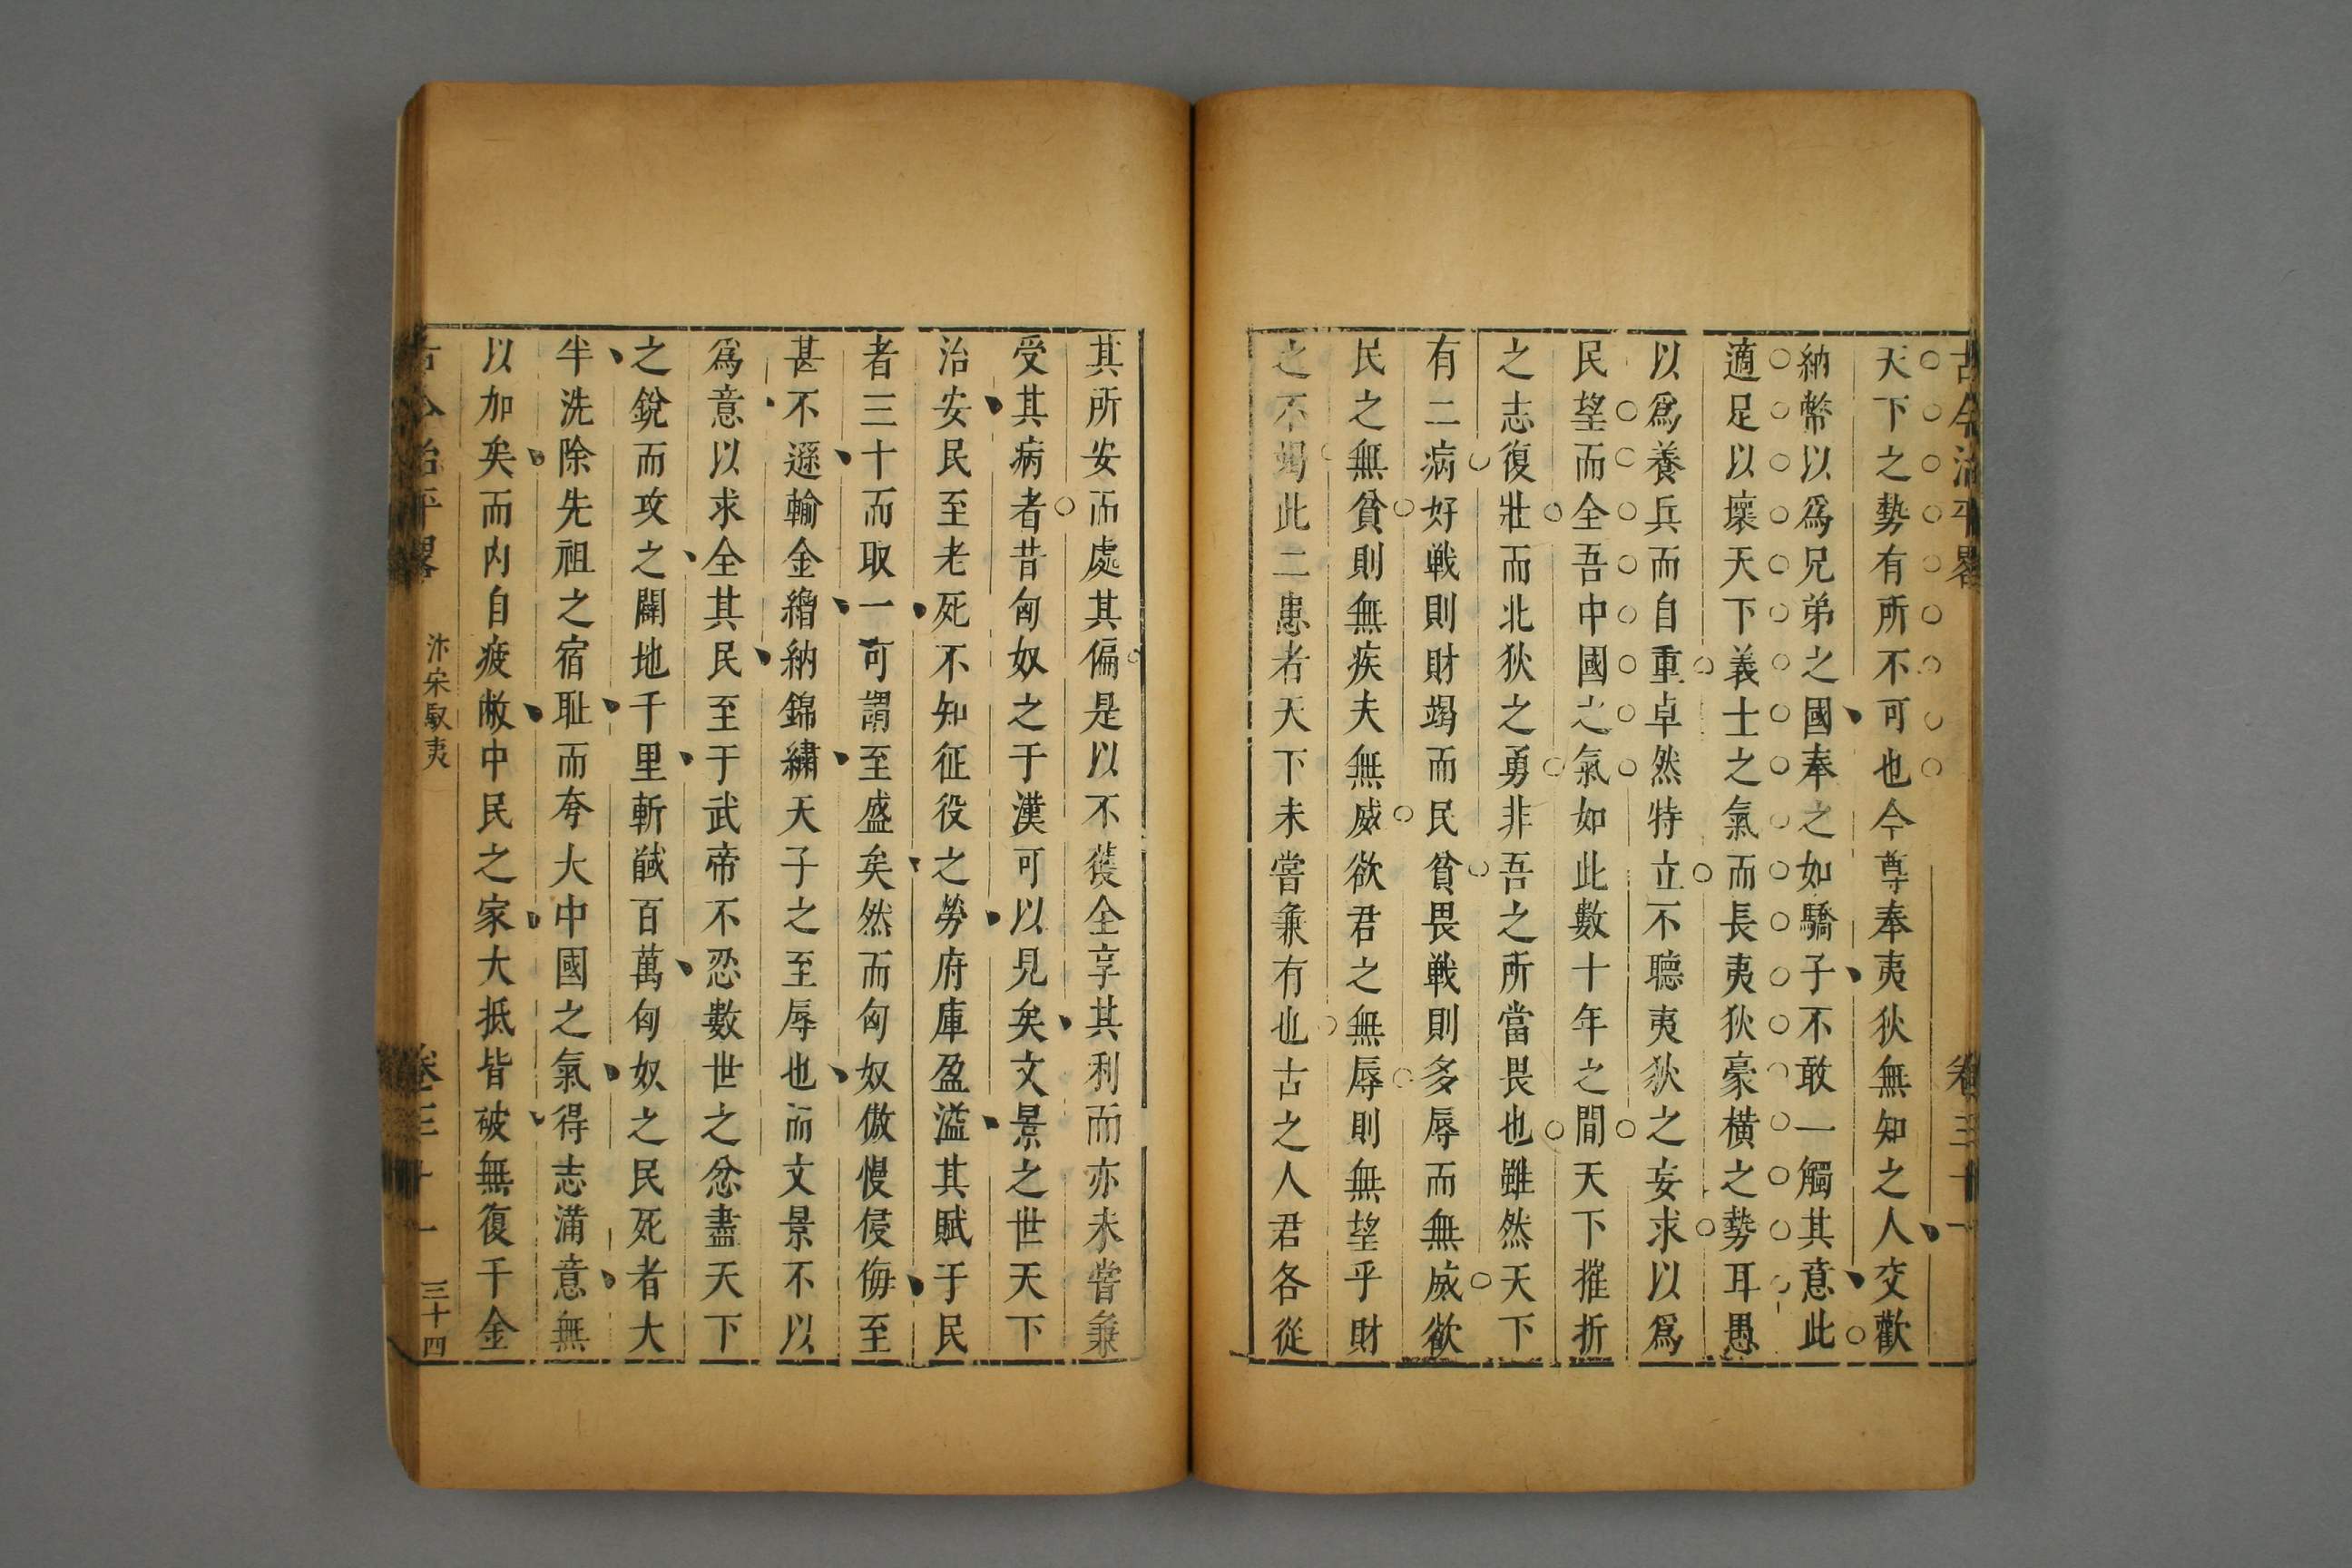 古今治平畧 卷三十一
天下之勢有所不可也今尊奉夷狄無知之人交歡
納幣以爲兄弟之國奉之如驕子不敢一觸其意此
適足以壞天下義士之氣而長夷狄豪橫之勢耳愚
以爲養兵而自重卓然特立不聽夷狄之妄求以爲
民望而全吾中國之氣如此數十年之間天下摧折
之志復壯而北狄之勇非吾之所當畏也雖然天下
有二病好戰則財竭而民貧畏戰則多辱而無威欲
民之無貧則無疾夫無威欲君之無辱則無望乎財
之不竭此二患者天下未嘗兼有也古之人君各從
其所安而處其偏是以不獲全享其利而亦未嘗兼
受其病者昔匈奴之于漢可以見矣文景之世天下
治安民至老死不知征役之勞府庫盈溢其賦于民
者三十而取一可謂至盛矣然而匈奴傲慢侵侮至
甚不遜輸金繒納錦繡天子之至辱也而文景不以
爲意以求全其民至于武帝不忍數世之忿盡天下
之銳而攻之闢地千里斬馘百萬匈奴之民死者大
半洗除先祖之宿耻而夸大中國之氣得志滿意無
以加矣而内自疲敝中民之家大抵皆破無復千金
古今治平畧 汴宋馭夷 卷三十一 三十四